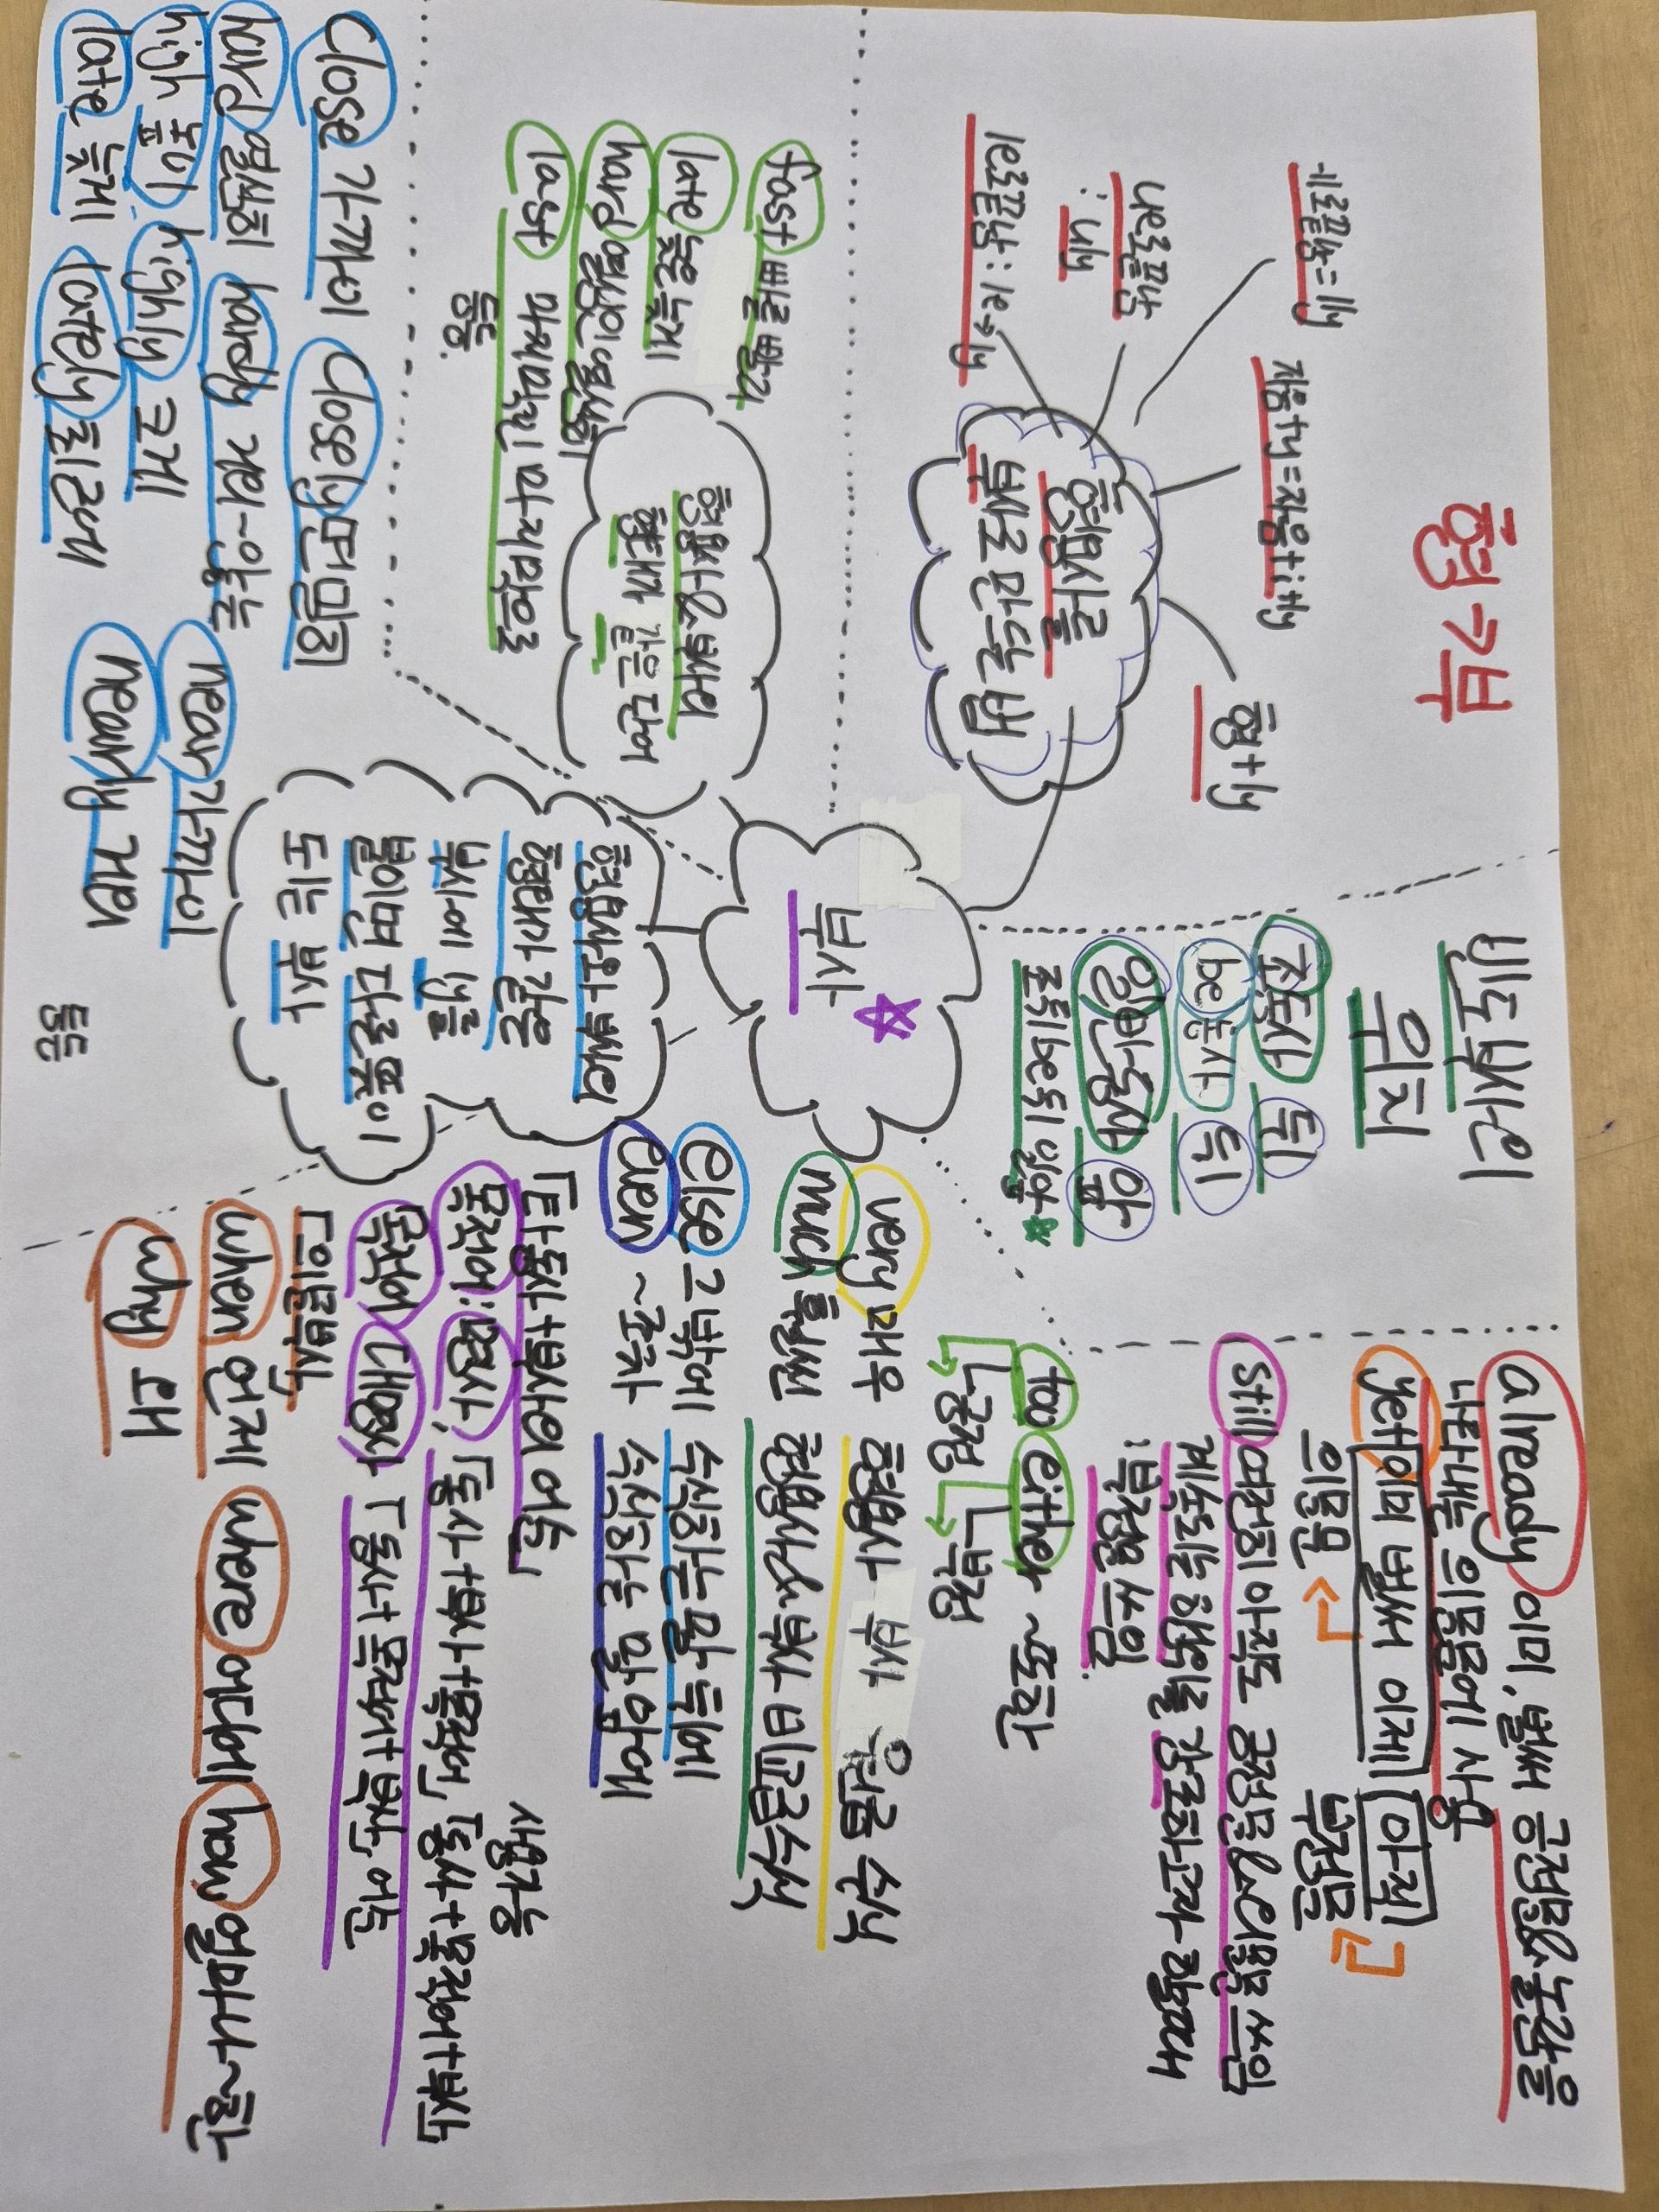 형 부
ㅔ로끝남=lly
자음+y=자음+ily
형+ly
ue로끝남
: uly
le로끝남 : le→ly
형용사를
부사로 만드는 법
fast 빠른 빨리
late 늦은 늦게
hard 열심인 열심히
last 마지막인 마지막으로
등등.
형용사&부사의
형태가 같은 단어
close 가까이 closely 면밀히
hard 열심히 hardly 거의~않는
high 높이 highly 크게
late 늦게 lately 최근에
near 가까이
nearly 거의
등등
형용사와 부사의
형태가 같은
부사에 ly를
붙이면 다른 뜻이
되는 부사
부사
빈도부사의
위치
조동사 뒤
be동사 뒤
일반동사 앞
조뒤be뒤일앞
already 이미, 벌써 긍정문&놀람을
나타내는 의문문에 사용
yet 이미 벌써 이제 아직
의문문 부정문
still 여전히 아직도 긍정문&의문문 쓰임
계속되는 행위를 강조하고자 할때
: 부정문 쓰임
too either ~또한
긍정 부정
very 매우 형용사 부사 원급 수식
much 훨씬 형용사&부사 비교급수식
else 그밖에 수식하는 말 뒤에
even ~조차 수식하는 말 앞에
「타동사+부사의 어순」
사용가능
목적어:명사, 「동사+부사+목적어」 「동사+목적어+부사」
목적어 대명사 「동사+목적어+부사」 어순
「의문부사」
when 언제 where 어디에 how 얼마나~한
why 왜